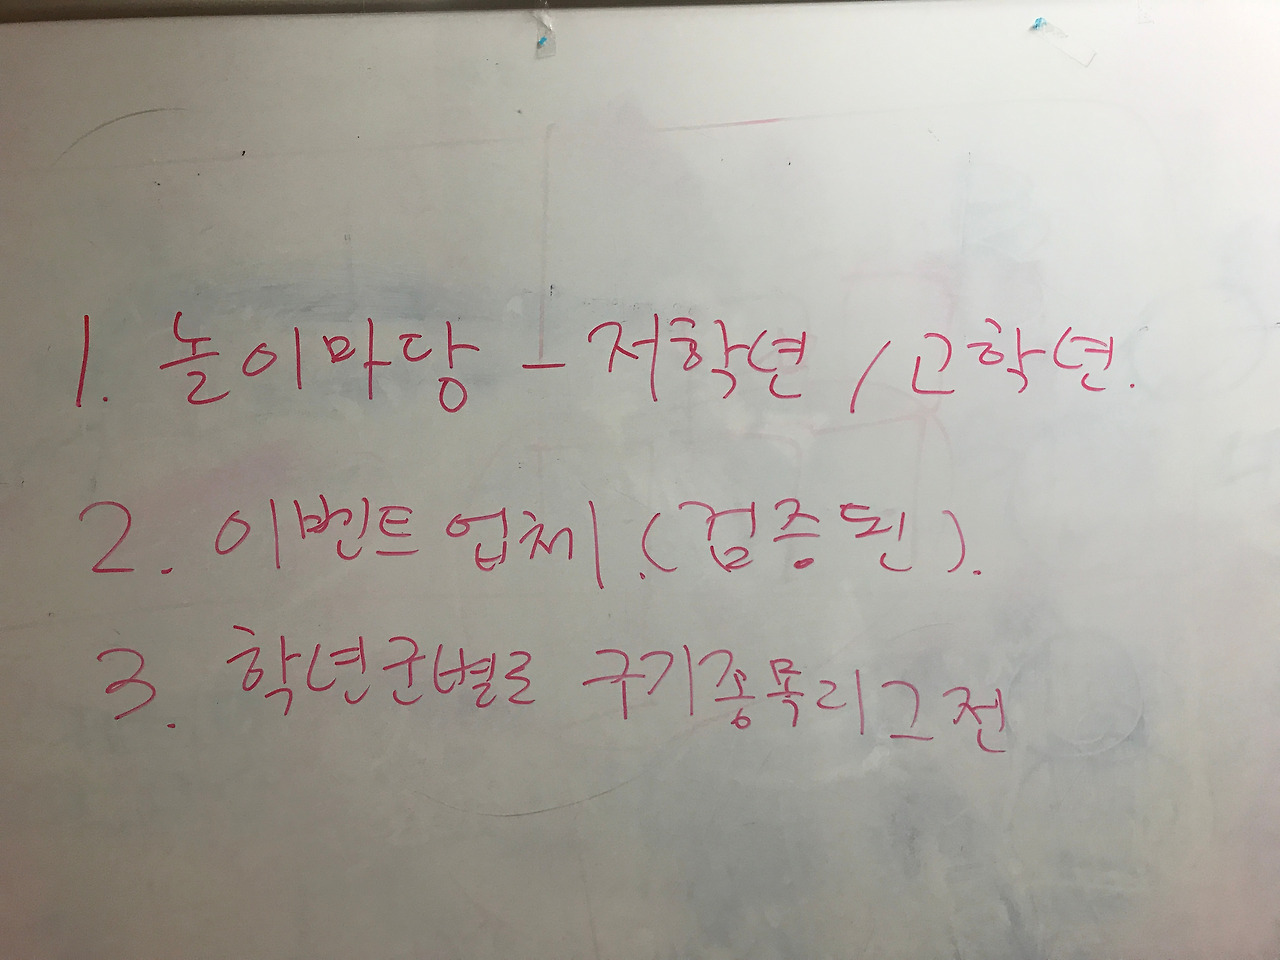 1. 놀이마당 - 저학년 / 고학년.
2. 이벤트 업체.(검증된).
3. 학년군별로 구기종목리그전